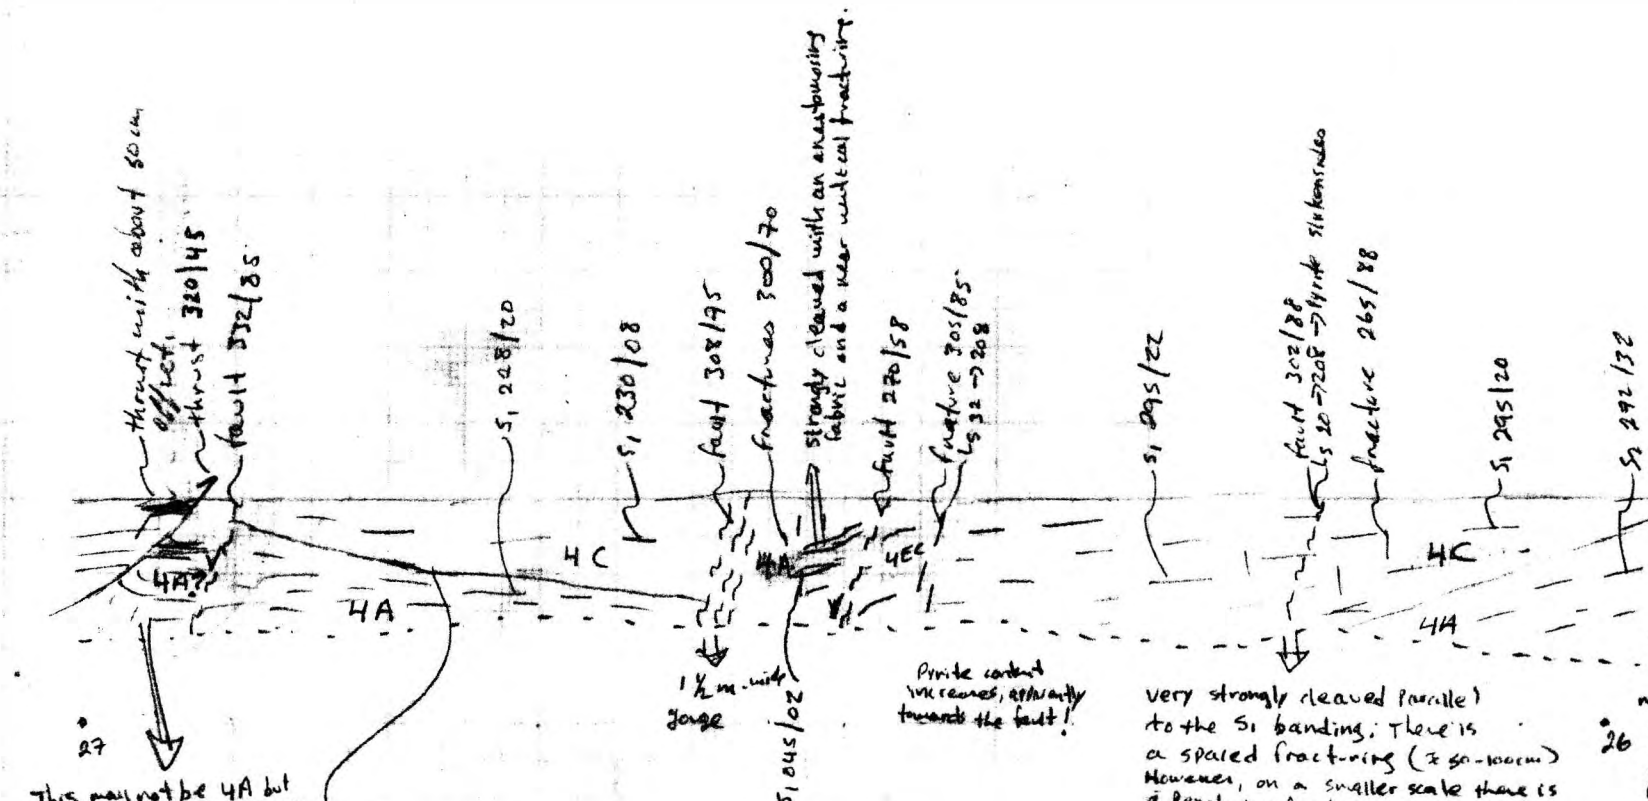 thrust with about 50 cm
offset.
thrust 320/45
fault 332/85
S₁ 228/20
S₁ 230/08
fault 308/75
fractures 300/70
strongly cleaved with an anastomosing
fabric and a near vertical fracturing.
fault 270/58
fracture 305/85
Ls 32→208
S₁ 295/22
fault 302/88
Ls 20→208→Pyrite slikensides
fracture 265/88
S₁ 295/20
292/32
4C
4A
4EC
4C
4A?
4A
4A
1½ m-wide
gouge
S₁ 045/02
Pyrite content
increases, apparently
towards the fault!
very strongly cleaved Parallel
to the S₁ banding. There is
a spaced fracturing (± 50-100cm)
However, on a smaller scale there is
27
26
This may not be 4A but